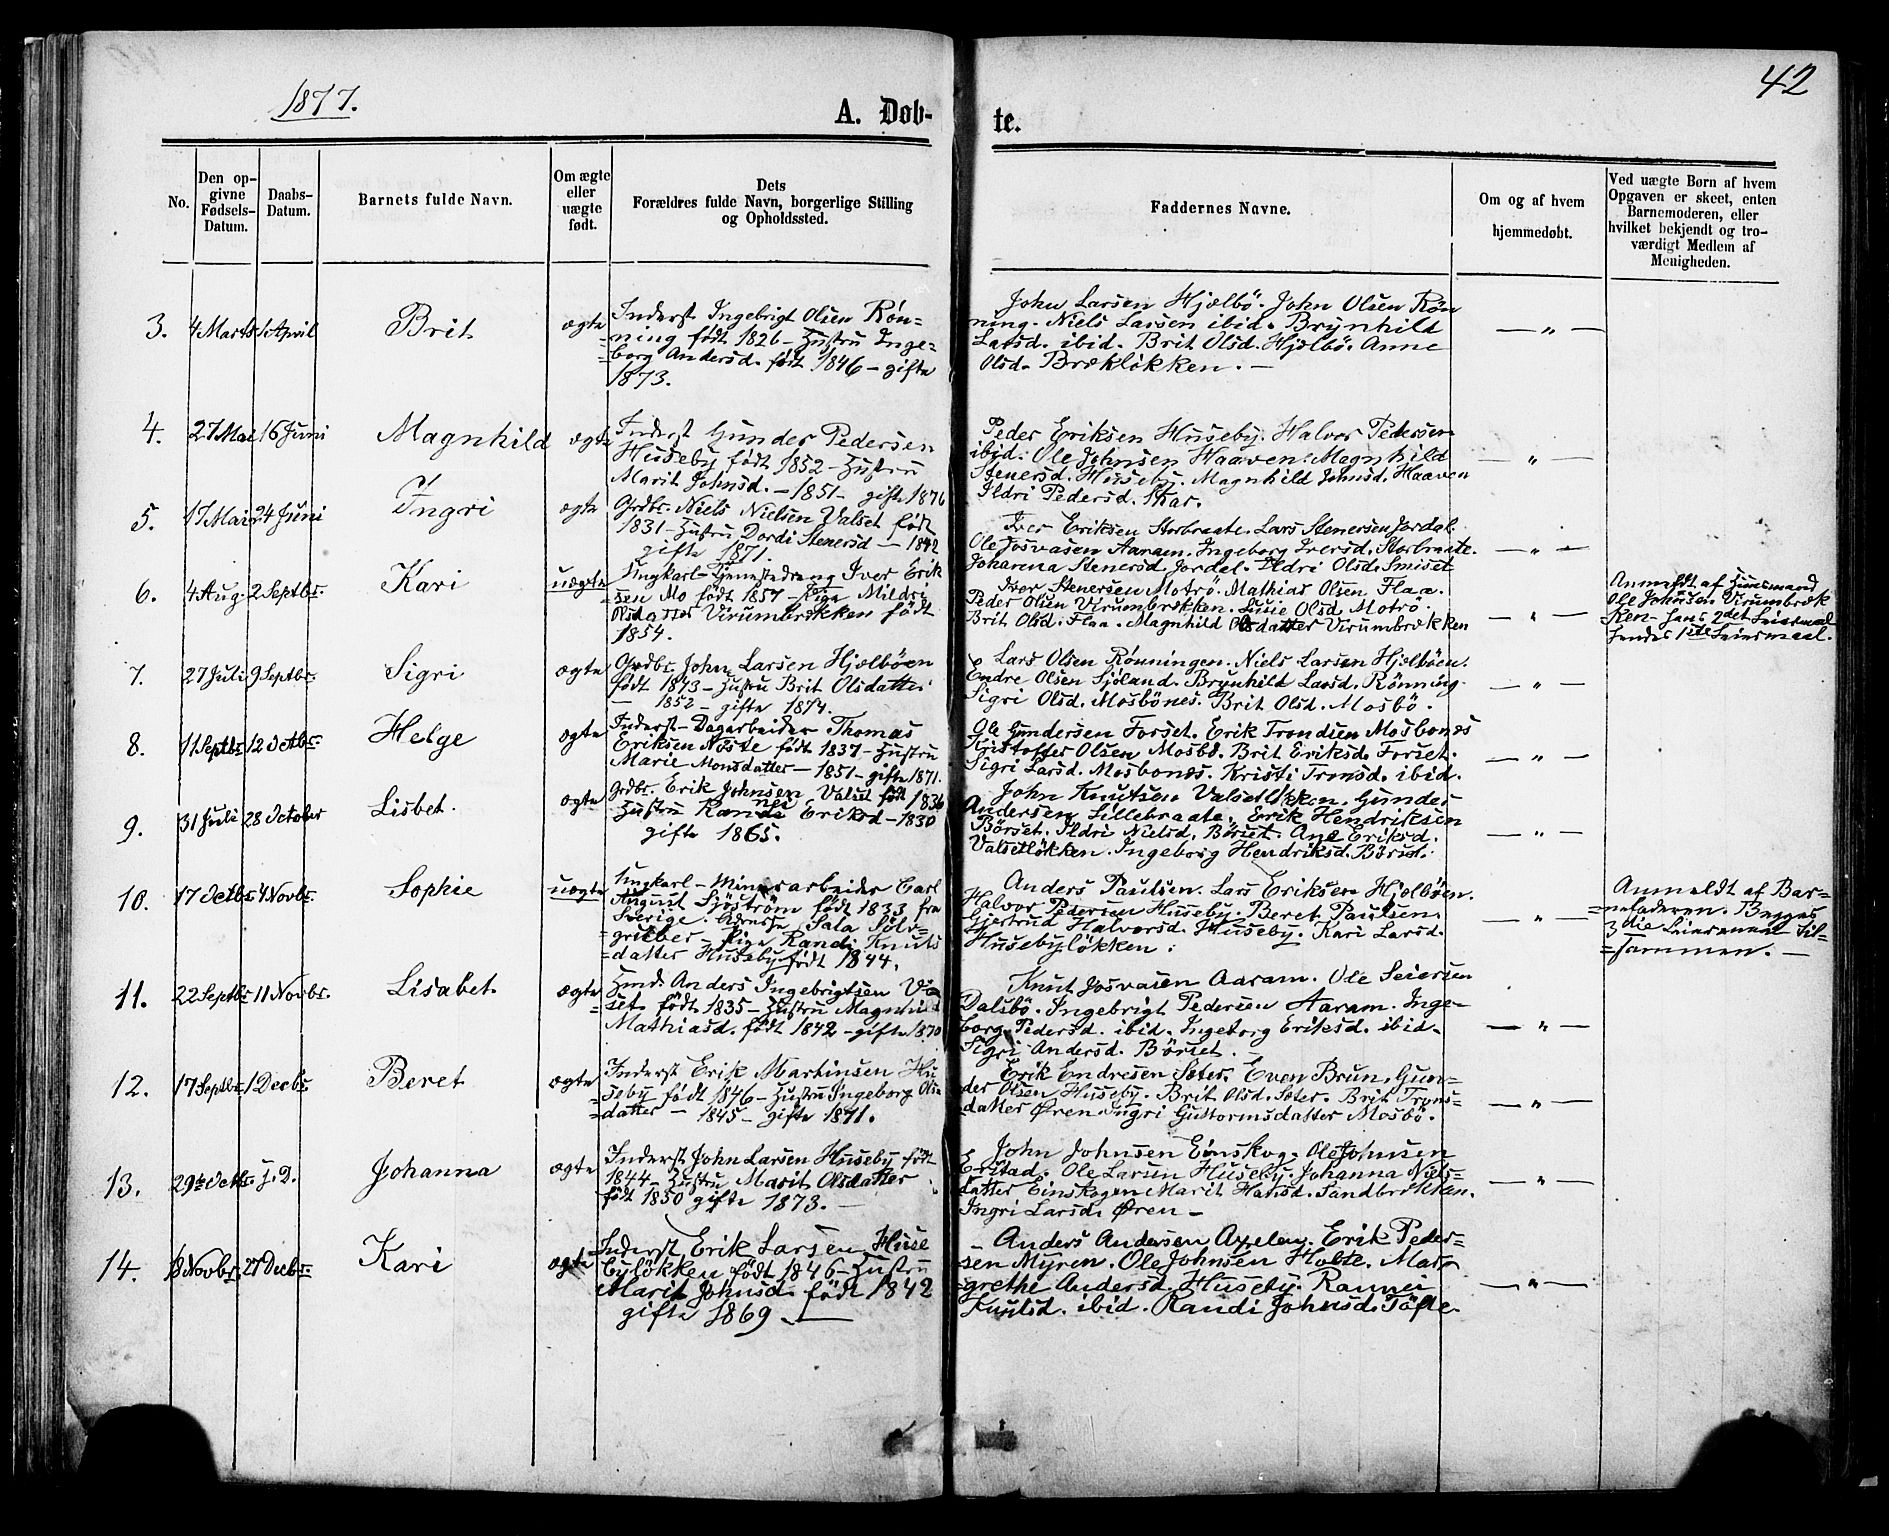 1877.
42
A. Døb-
te.
No.
Den op-
givne
Fødsels-
Datum.
Daabs-
Datum.
Barnets fulde Navn.
Om ægte
eller
uægte
født.
Dets
Forældres fulde Navn, borgerlige Stilling
og Opholdssted.
Faddernes Navne.
Om og af hvem
hjemmedøbt.
Ved uægte Børn af hvem
Opgaven er skeet, enten
Barnemoderen, eller
hvilket bekjendt og tro-
værdigt Medlem af
Menigheden.
3. 4 Marts 1 April Brit ægte
Inderst Ingebrigt Olsen Røn-
=ning født 1826 - Hustru Inge-
=borg Andersd. født 1846 - gifte
1873.
John Larsen Hjælbö. John Olsen Røn
ning. Niels Larsen ibid. Brynhild
Larsd. ibid. Brit Olsd. Hjælbö. Anne
Olsd. Bræklökken. -
— " —
4. 27 Mai 16 Juni Magnhild ægte
Inderst Gunder Pedersen
Huseby født 1852 - Hustru
Marit Johnsd. - 1851 - gifte 1876
Peder Eriksen Huseby. Halvor Pedersen
ibid. Ole Johnsen Haaven. Magnhild
Stenersd. Huseby. Magnhild Johnsd. Haaven
Ildri Pedersd. Skar.
— " —
5. 17 Mai 24 Juni Ingri ægte
Grdbr. Niels Nielsen Valset født
1831 - Hustru Dordi Stenersd - 1842
gifte 1871.
Iver Eriksen Storbraate. Lars Stenersen Jordal.
Ole Josvasen Aaram. Ingeborg Iversd. Storbraate.
Johanna Stenersd. Jordal. Ildri Olsd. Smiset
— " —
6. 4 Aug. 2 Septbr. Kari uægte
Ungkarl - Tjenestedreng Iver Erik
=sen Mo født 1857 - Pige Mildri
Olsdatter Virumbrækken født
1854.
Iver Stenersen Motrö. Mathias Olsen Flaa.
Peder Olsen Virumbrækken. Olsd. Motrö.
Brit Olsd. Flaa. Magnhild Olsdatter Virumbrækken
— " —
Anmeldt af Huusmand
Ole Johnsen Virumbræk
ken - hans 2det Leiermaal
hendes 1ste Leiermaal.
7. 27 Juli 9 Septbr. Sigri ægte
Grdbr. John Larsen Hjælböen
født 1873 - Hustru Brit Olsdatter
— 1852 - gifte 1874.
Lars Olsen Rönningen. Niels Larsen Hjælböen.
Endre Olsen Sjöland. Brynhild Larsd. Rönning.
Sigri Olsd. Mosbönes. Brit Olsd. Mosbö.
— " —
8. 11 Septbr 12 Octbr Helge ægte
Inderst - Dagarbeider Thomas
Eriksen Nöste født 1837 - Hustru
Marie Monsdatter - 1851 - gifte 1871.
Ole Gundersen Forset. Erik Trondsen Mosbönes
Kristoffer Olsen Mosbö. Brit Eriksd. Forset.
Sigri Larsd. Mosbönes. Kristi Tronsd. ibid.
— " —
9. 31 Juli 28 October Lisbet. ægte
Grdbr. Erik Johnsen Valset født 1836
Hustru Eriksd - 1830
gifte 1865.
John Knutsen Valsetlökken. Gunder
Andersen Lillebraate. Erik Hendriksen
Börset. Ildri Nielsd. Börset. Ane Eriksd.
Valsetlökken. Ingeborg Hendriksd. Börset.
— " —
10. 17 Octbr 4 Novbr. Sophie uægte
Ungkarl - Minearbeider Carl
August Sjöström født 1833 fra
Sverige. Adresse Sala Sölv-
=gruber - Pige Randi Knuts
=datter Huseby født 1844.
Anders Paulsen. Lars Eriksen Hjælböen.
Halvor Pedersen Huseby. Beret Paulsen.
Gjertrud Halvorsd. Huseby. Kari Larsd.
Husebylökken.
— " —
Anmeldt af Bar-
=nefaderen. Begges
3die Leiermaal Til-
=sammen. —
11. 22 Septbr 11 Novbr. Lisabet. ægte
Hmd. Anders Ingebrigtsen
=set født 1835 - Hustru Magnhild
Mathiasd. født 1842 - gifte 1870
Knut Josvasen Aaram. Ole Seiersen
Dalsbö. Ingebrigt Pedersen Aaram. Inge-
borg Pedersd. ibid. Ingeborg Eriksd. ibid.
Sigri Andersd. Börset.
— " —
12. 17 Septbr. 1 Decbr Beret ægte
Inderst Erik Martinsen Hu
=seby født 1846 - Hustru Ingeborg Ols
=datter - 1845 - gifte 1871.
Erik Endresen Sæter. Even Brun. Gun-
der Olsen Huseby. Brit Olsd. Sæter. Brit Trons-
datter Øren. Ingri Guttormsdatter Mosbö.
— " —
13. 29de Octbr. J. D. Johanna ægte
Inderst John Larsen Huseby født
1844 - Hustru Marit Olsdatter
født 1850 gifte 1873. —
John Johnsen Einskog. Ole Johnsen
Erstad. Ole Larsen Huseby. Johanna Niels-
datter Einskogen. Marit Hansd. Sandbrækken.
Ingri Larsd. Øren —
— " —
14. 18 Novbr. 27 Decbr. Kari ægte
Inderst Erik Larsen Huse
bylökken født 1846 - Hustru
Marit Johnsd. født 1842
gifte 1869. —
Anders Andersen Axelen. Erik Peder-
sen Myren. Ole Johnsen Holte. Mar
=grethe Andersd. Huseby. Rannei
Knutsd. ibid. Randi Johnsd. Töfte.
— " —